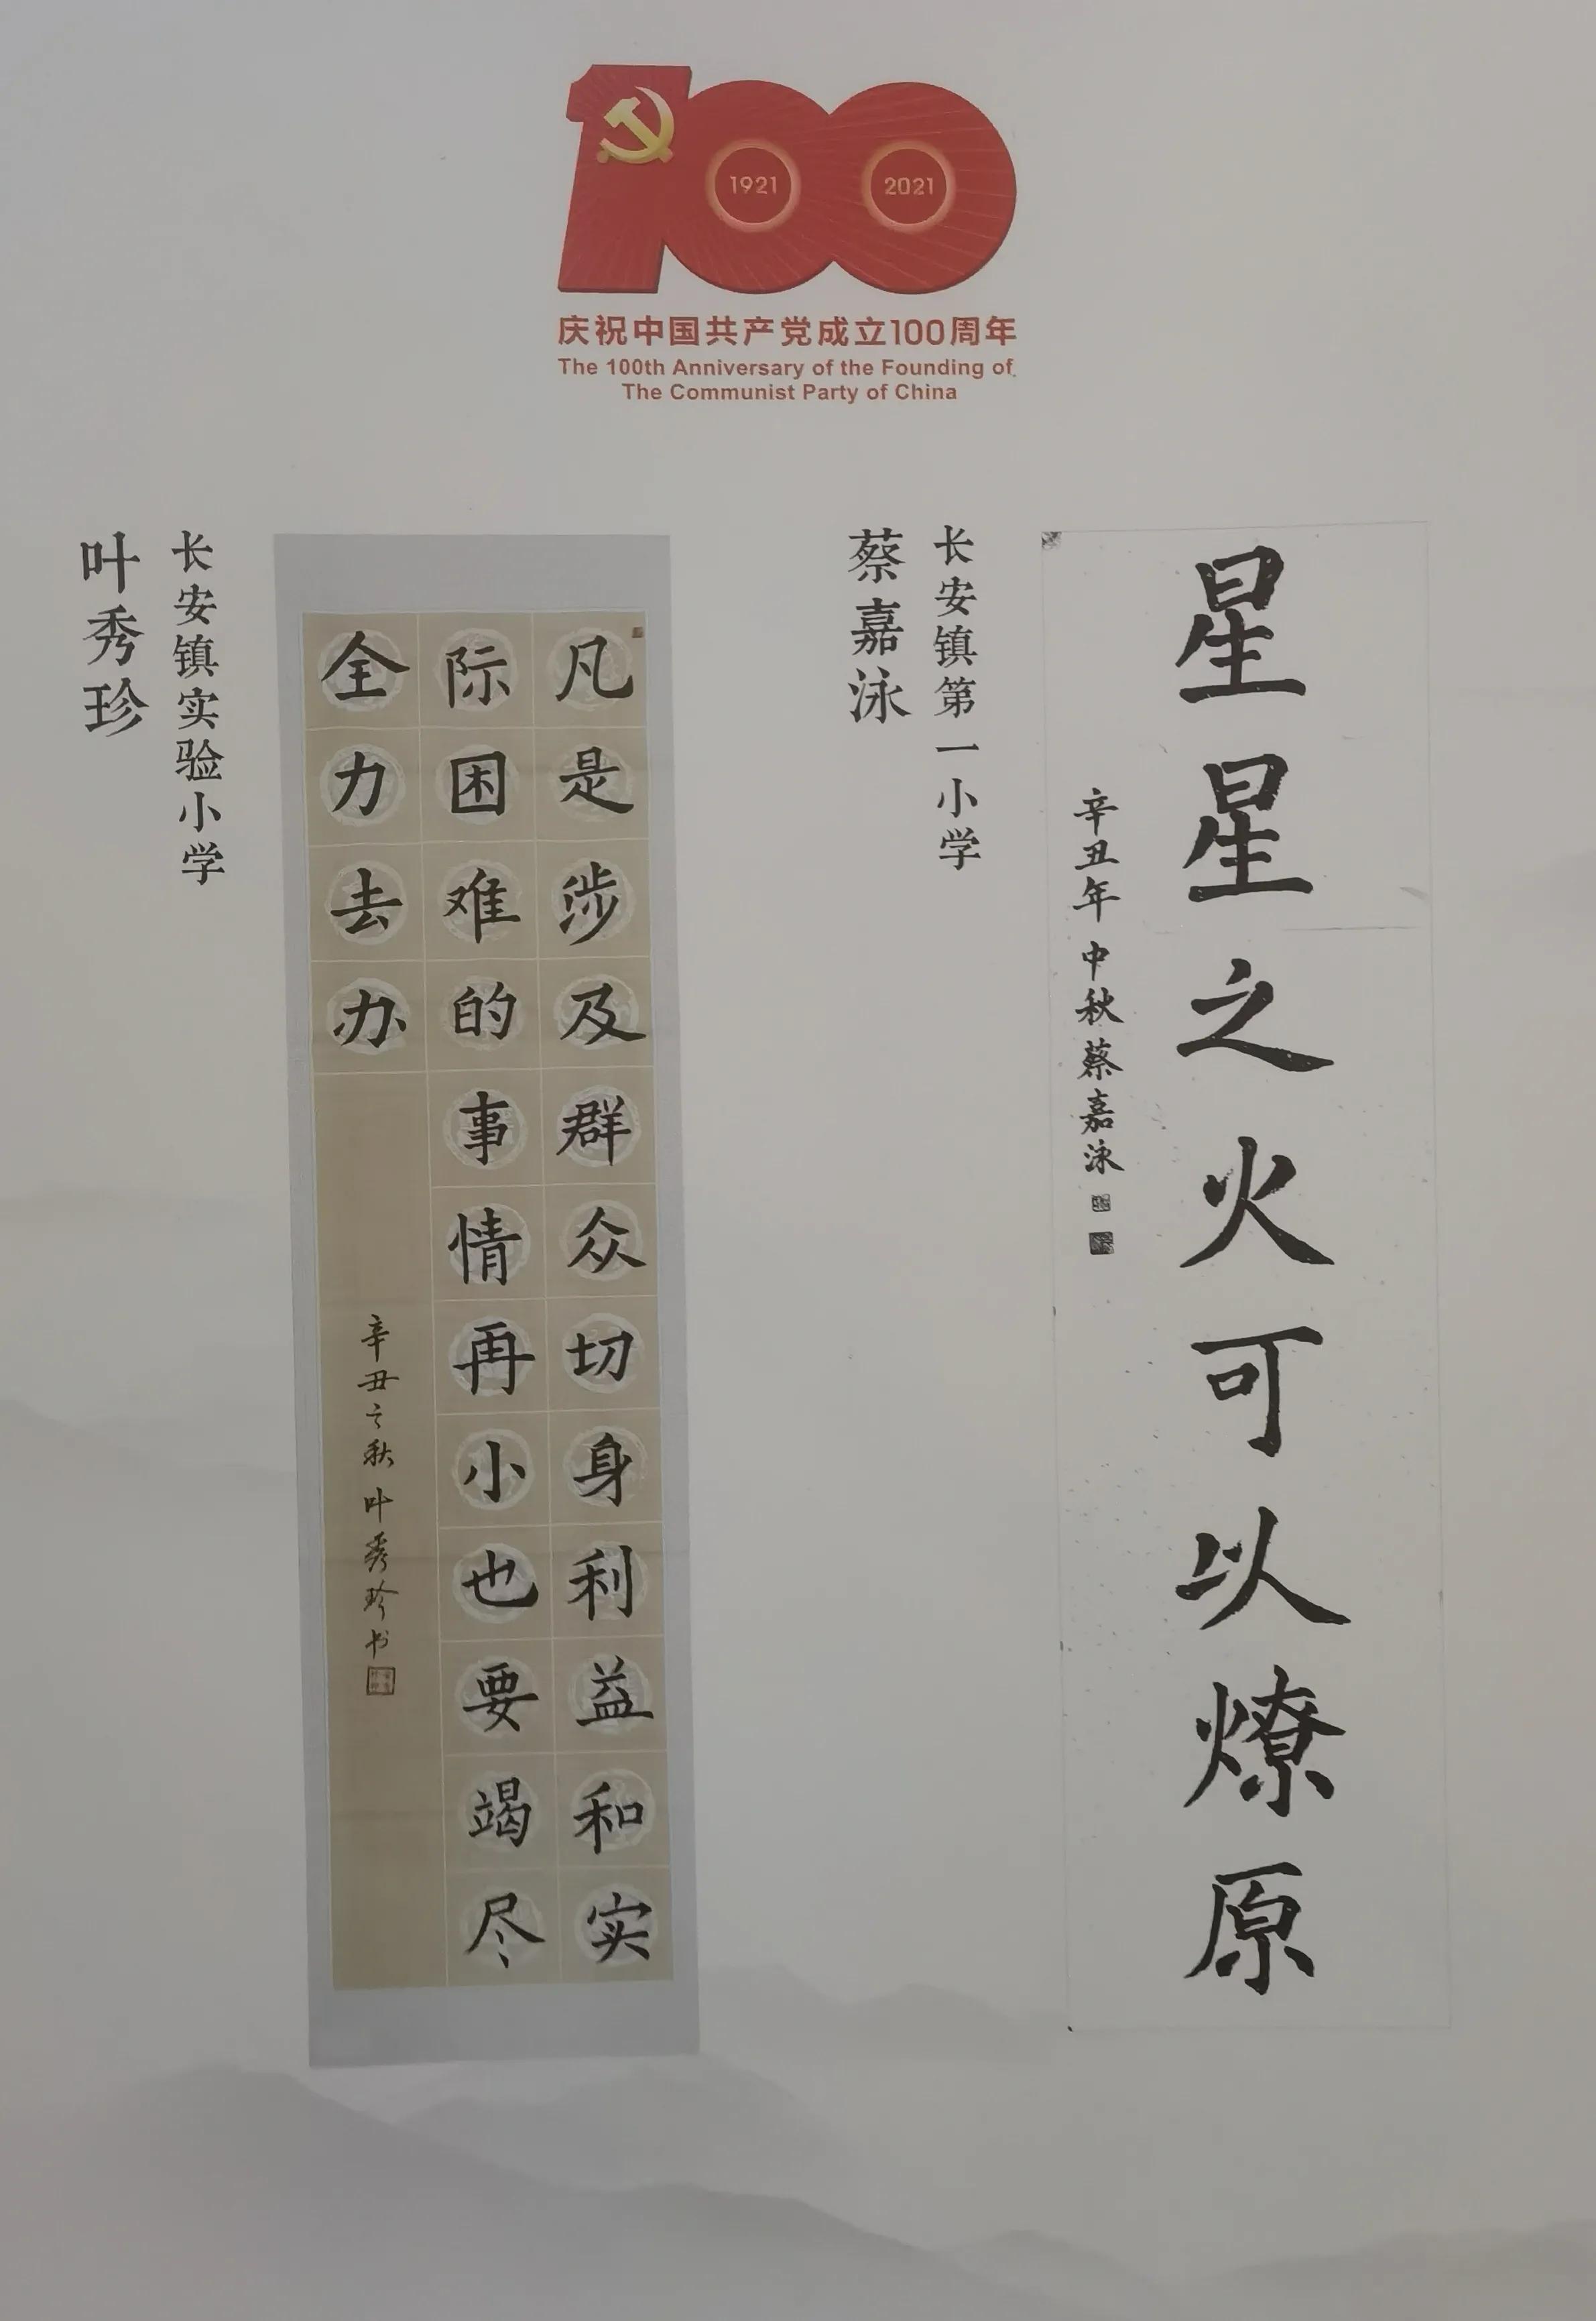 1921
2021
庆祝中国共产党成立100周年
The 100th Anniversary of the Founding of
The Communist Party of China
星星之火可以燎原
辛丑年中秋蔡嘉泳
长安镇第一小学
蔡嘉泳
凡是涉及群众切身利益和实
际困难的事情再小也要竭尽
全力去办
辛丑之秋叶秀珍书
长安镇实验小学
叶秀珍